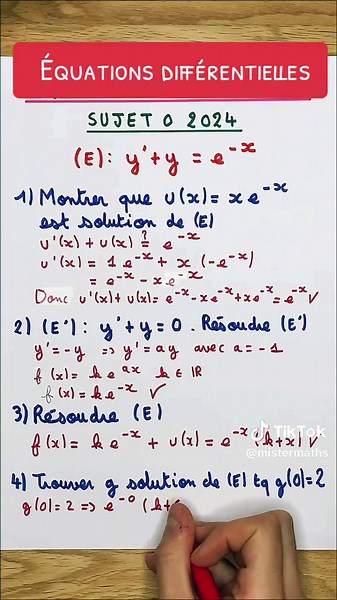 ÉQUATIONS DIFFÉRENTIELLES
SUJET 0 2024
(E): y' + y = e^-x
1) Montrer que u(x) = x e^-x
est solution de (E)
u'(x) + u(x) ?= e^-x
u'(x) = 1 e^-x + x (-e^-x)
= e^-x - x e^-x
Donc u'(x) + u(x) = e^-x - x e^-x + x e^-x = e^-x ✓
2) (E'): y' + y = 0 . Résoudre (E')
y' = -y => y' = a y avec a = -1
f(x) = k e^ax k ∈ ℝ
f(x) = k e^-x ✓
3) Résoudre (E)
f(x) = k e^-x + u(x) = e^-x (k+x) ✓
TikTok
@mistermaths
4) Trouver g solution de (E) tq g(0) = 2
g(0) = 2 => e^-0 (k+